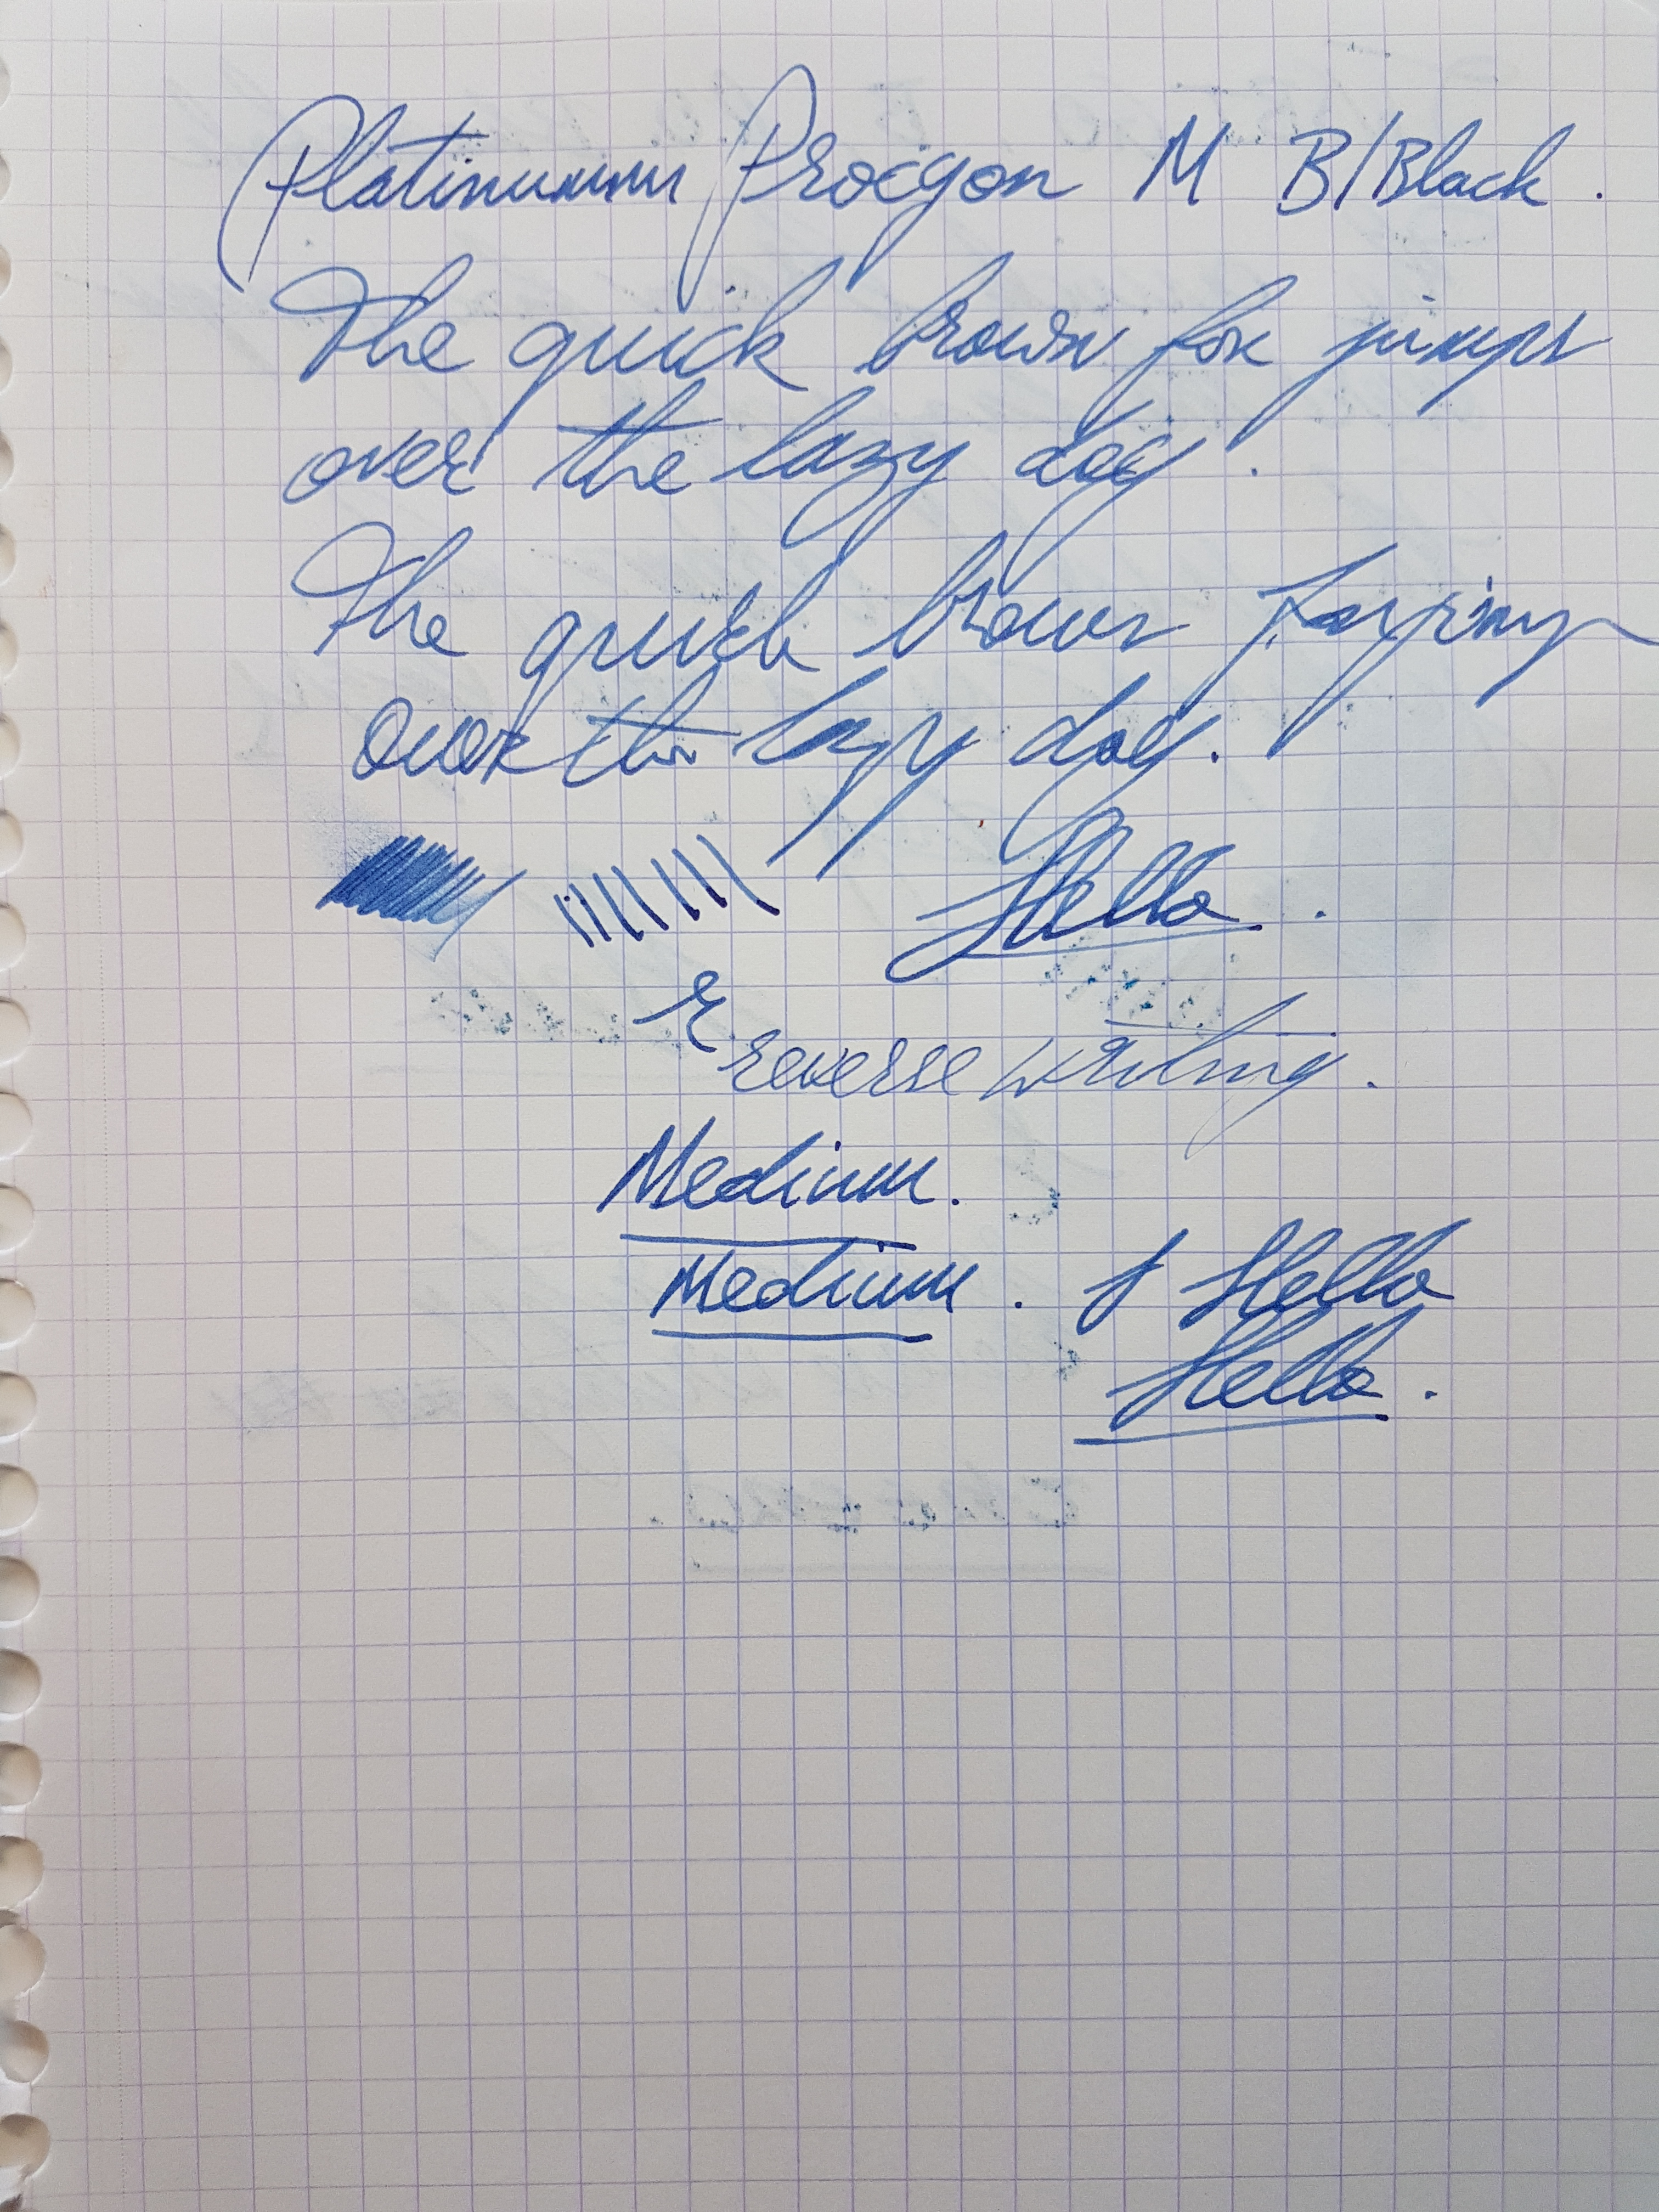 Platinum Procyon M B/Black.
The quick brown fox jumps
over the lazy dog.
The quick brown fox jumps
over the lazy dog.
Hello.
r reverse writing.
Medium.
Medium. Hello
Hello.